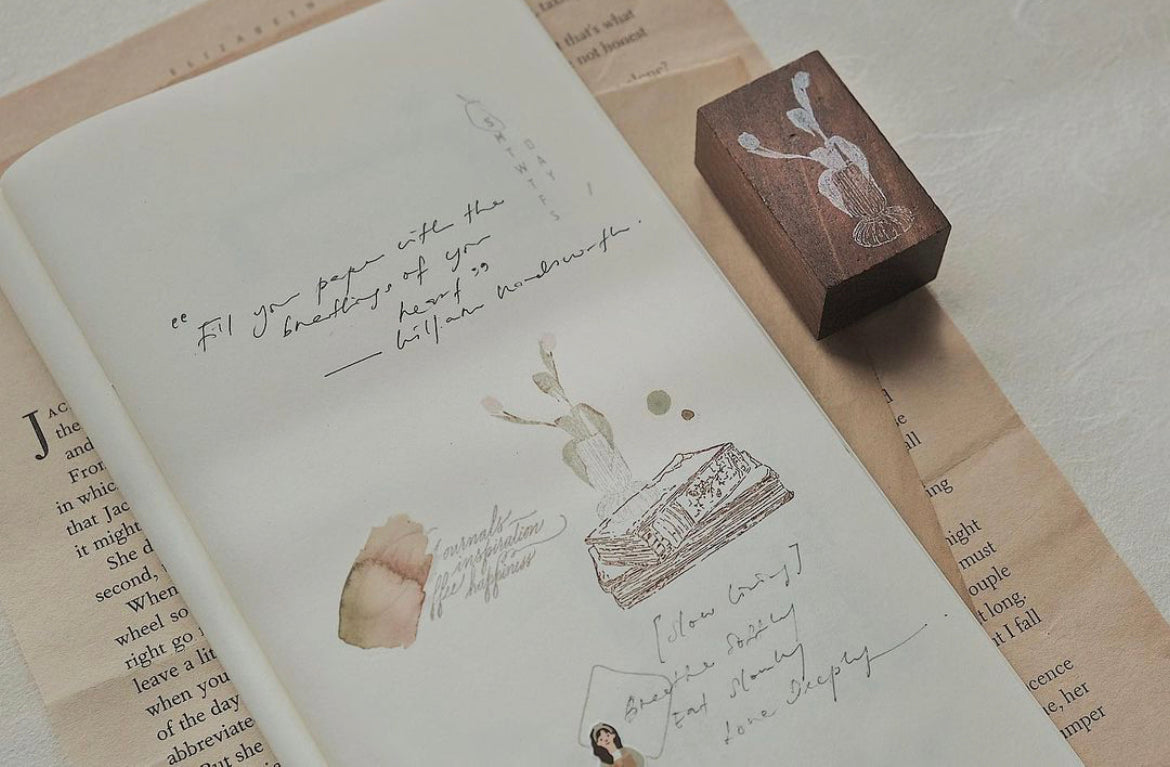 ELIZABETH
that's what
not honest
DAY
“Fill your paper with the
breathings of your
heart”
— William Wordsworth.
Journals
inspiration
happiness
[Slow living]
Breathe softly
Eat slowly
Love Deeply
J
the
and
From
in which
that Jac
it might
She d
second,
When
wheel so
right go i
leave a lit
when you
of the day
abbreviate
But she
all
ing
night
must
ouple
t long.
t I fall
cence
te, her
umper